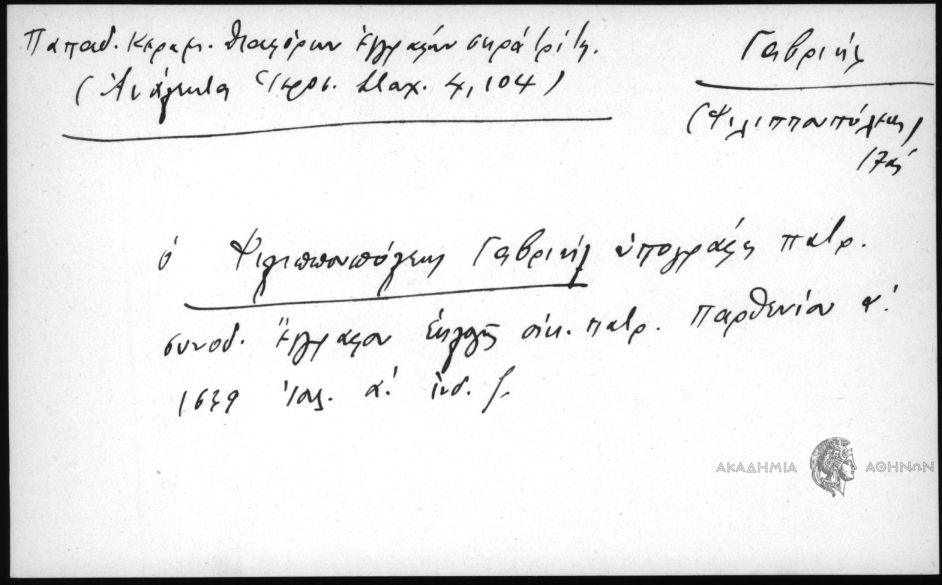 Παπαδ. Κεραμ. Διαφόρων ἐγγράφων σειρὰ τρίτη.
(Ἀνάλεκτα Ἱερος. Σταχ. 4, 104)
Γαβριήλ
(Φιλιππουπόλεως)
17ος
ὁ Φιλιππουπόλεως Γαβριήλ ὑπογράφει πατρ.
συνοδ. ἔγγραφον ἐκλογῆς οἰκ. πατρ. Παρθενίου α΄.
1639 Ἰουλ. α΄. ἰνδ. ζ.
ΑΚΑΔΗΜΙΑ ΑΘΗΝΩΝ